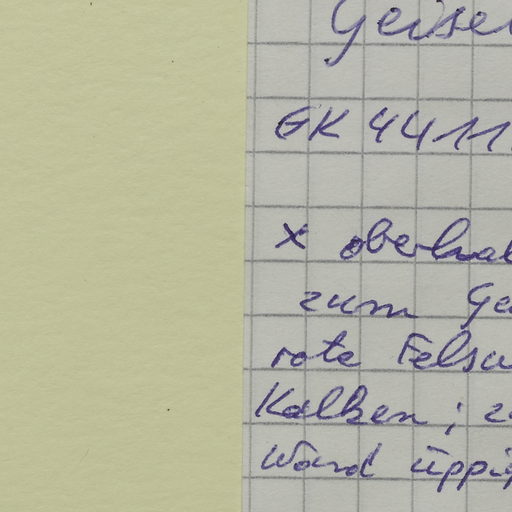 Geise
GK 4411
x oberhal
zum Ga
rote Felsw
Kalken; z
Wand üppig